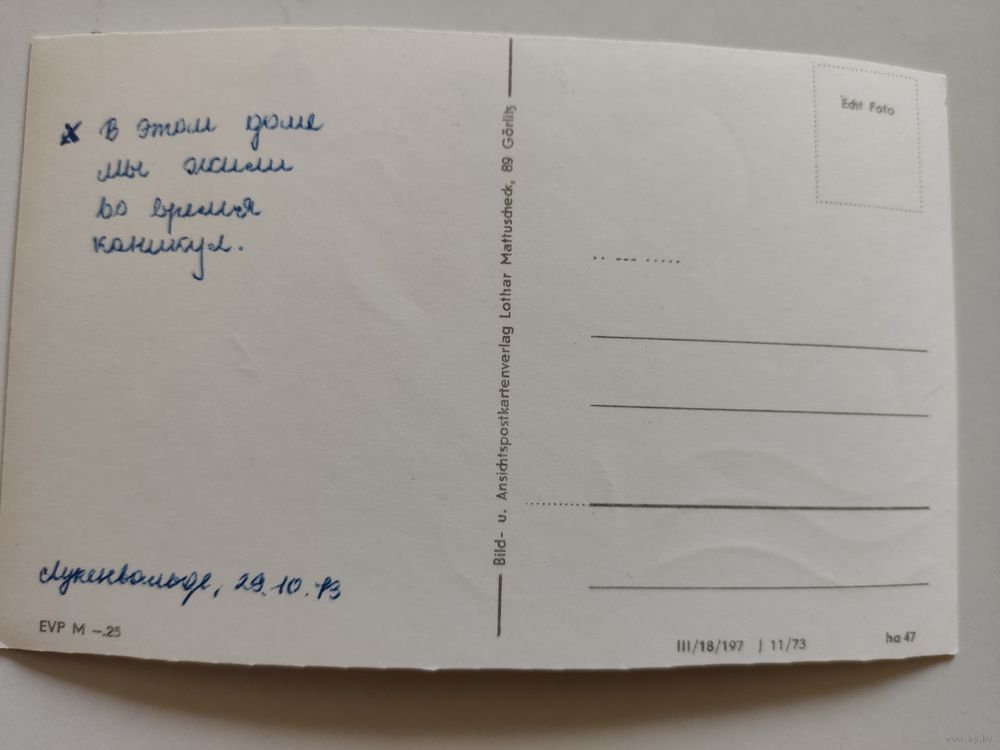 x В этом доме
мы жили
во время
каникул.
Лукенвальде, 29.10.73
EVP M –.25
Bild- u. Ansichtspostkartenverlag Lothar Mattuscheck, 89 Görlitz
Echt Foto
III/18/197 J 11/73
ha 47
www.ay.by